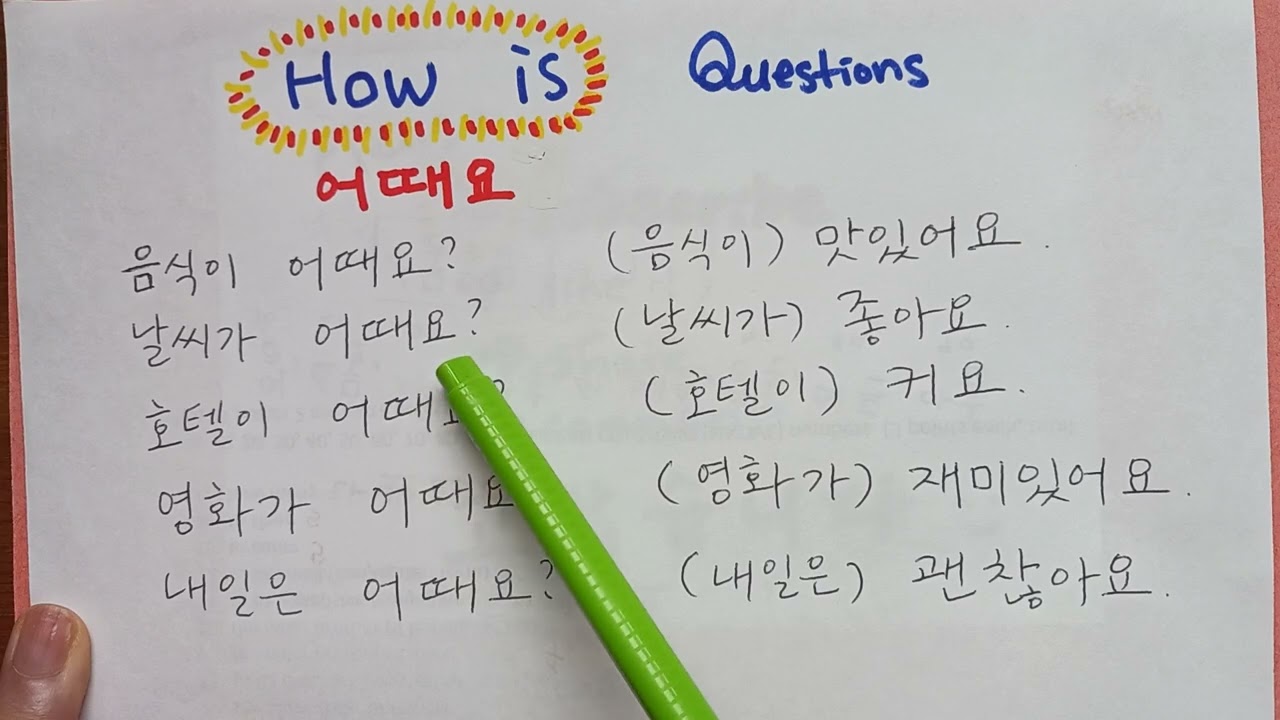 How is Questions
어때요
음식이 어때요? (음식이) 맛있어요.
날씨가 어때요? (날씨가) 좋아요.
호텔이 (호텔이) 커요.
영화가 어때요 (영화가) 재미있어요.
내일은 어때요? (내일은) 괜찮아요.